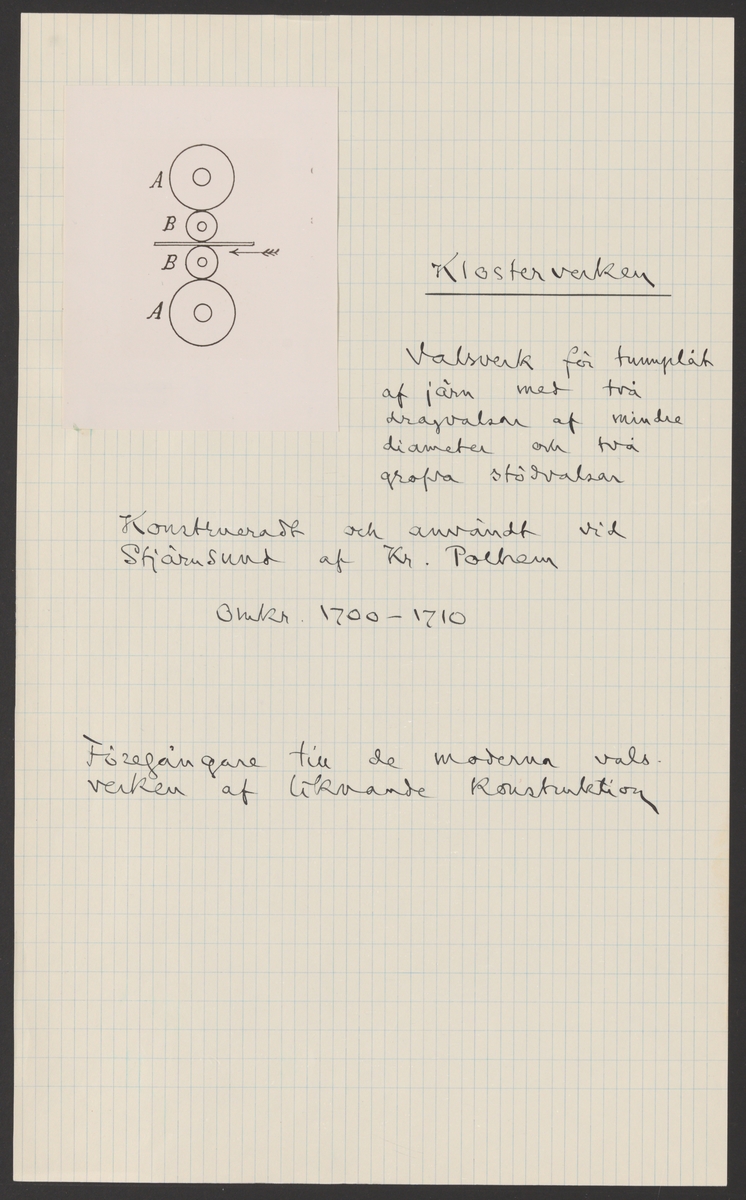 A
B
B
A
Klosterverken
Valsverk för tunnplåt
af järn med två
dragvalsar af mindre
diameter och två
grofva stödvalsar
Konstrueradt och användt vid
Stjärnsund af Kr. Polhem
Omkr. 1700-1710
Föregångare till de moderna vals-
verken af liknande konstruktion